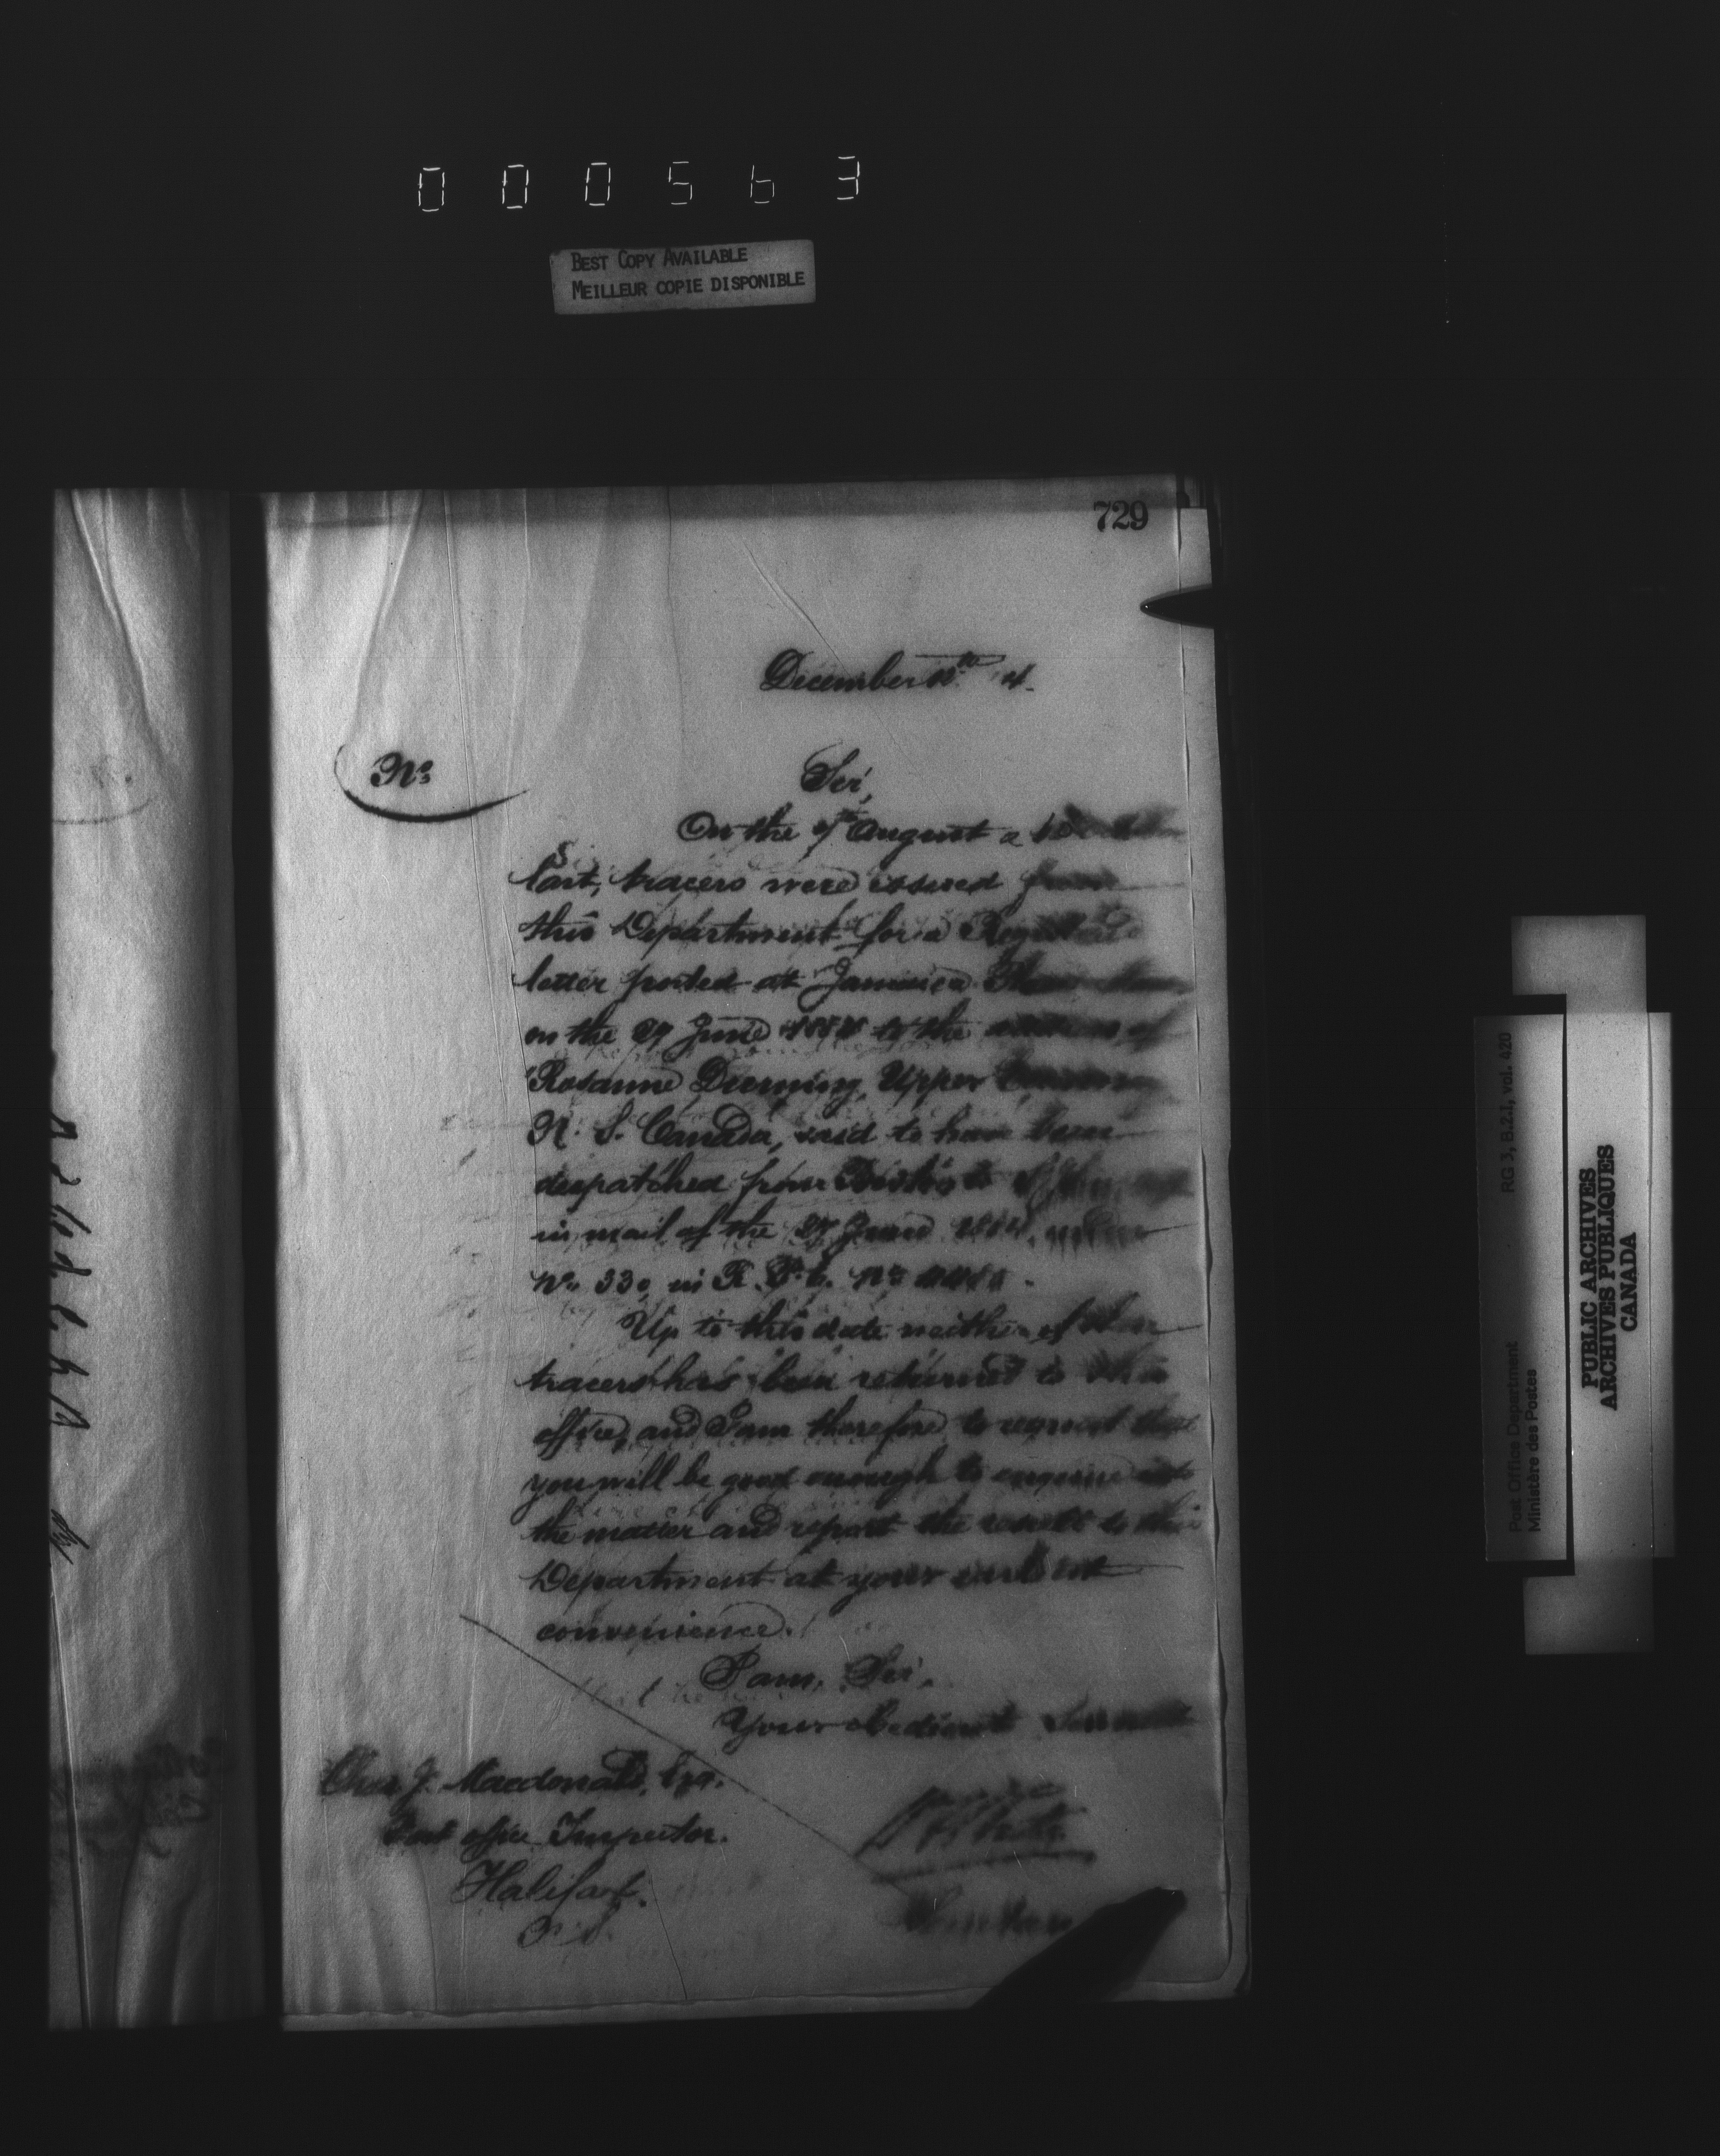 000563
BEST COPY AVAILABLE
MEILLEUR COPIE DISPONIBLE
729
December 4.
No
Sir,
On the August a
last, tracers were issued from
this Department for a Registered
letter posted at Jamaica
on the 27 June to the address of
Rosanne Deerning, Upper
N. S. Canada, said to have been
despatched from Boston to
in mail of the 27 June under
No. 330, in R. P. E. No
Up to this date neither of these
tracers has been returned to this
office, and I am therefore to request that
you will be good enough to enquire into
the matter and report the result to this
Department at your earliest
convenience.
I am, Sir,
Your obedient Servant
Chas J. Macdonald, Esq.
Post office Inspector.
Halifax.
N. S.
RG 3, B.2.1, vol. 420
Post Office Department
Ministère des Postes
PUBLIC ARCHIVES
ARCHIVES PUBLIQUES
CANADA